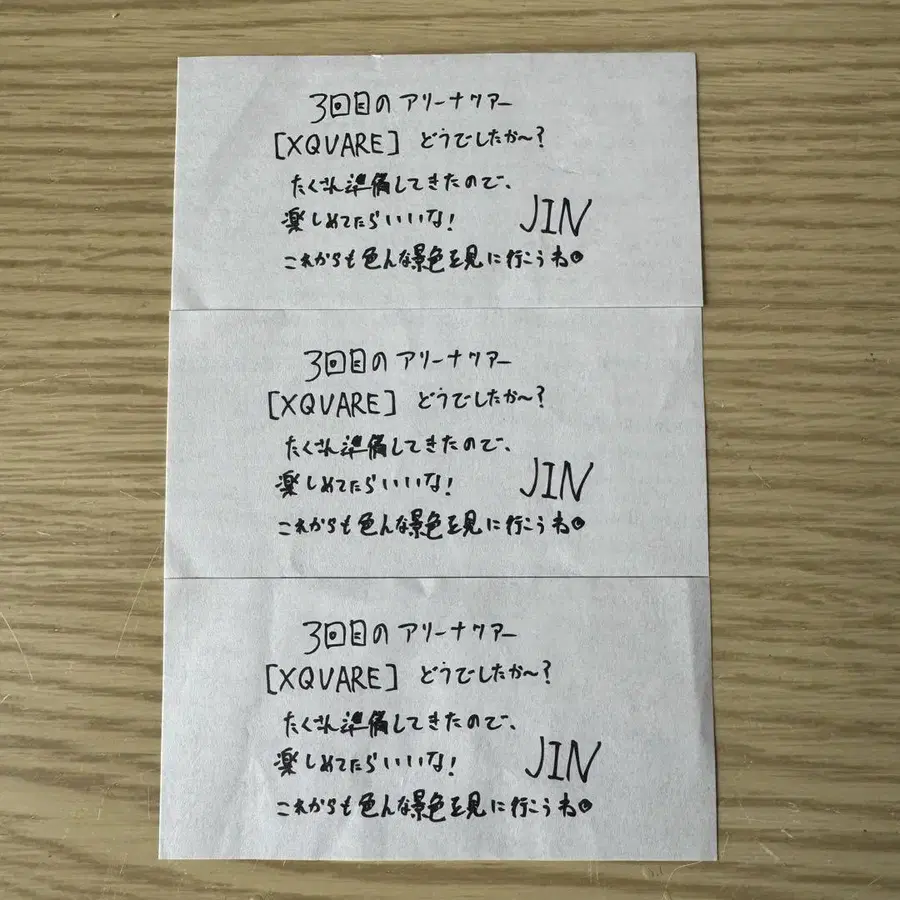 3回目の アリーナツアー
[XQVARE] どうでしたか〜?
たくさん準備してきたので、
楽しめてたらいいな!
JIN
これからも色んな景色を見に行こうね
3回目の アリーナツアー
[XQVARE] どうでしたか〜?
たくさん準備してきたので、
楽しめてたらいいな!
JIN
これからも色んな景色を見に行こうね
3回目の アリーナツアー
[XQVARE] どうでしたか〜?
たくさん準備してきたので、
楽しめてたらいいな!
JIN
これからも色んな景色を見に行こうね